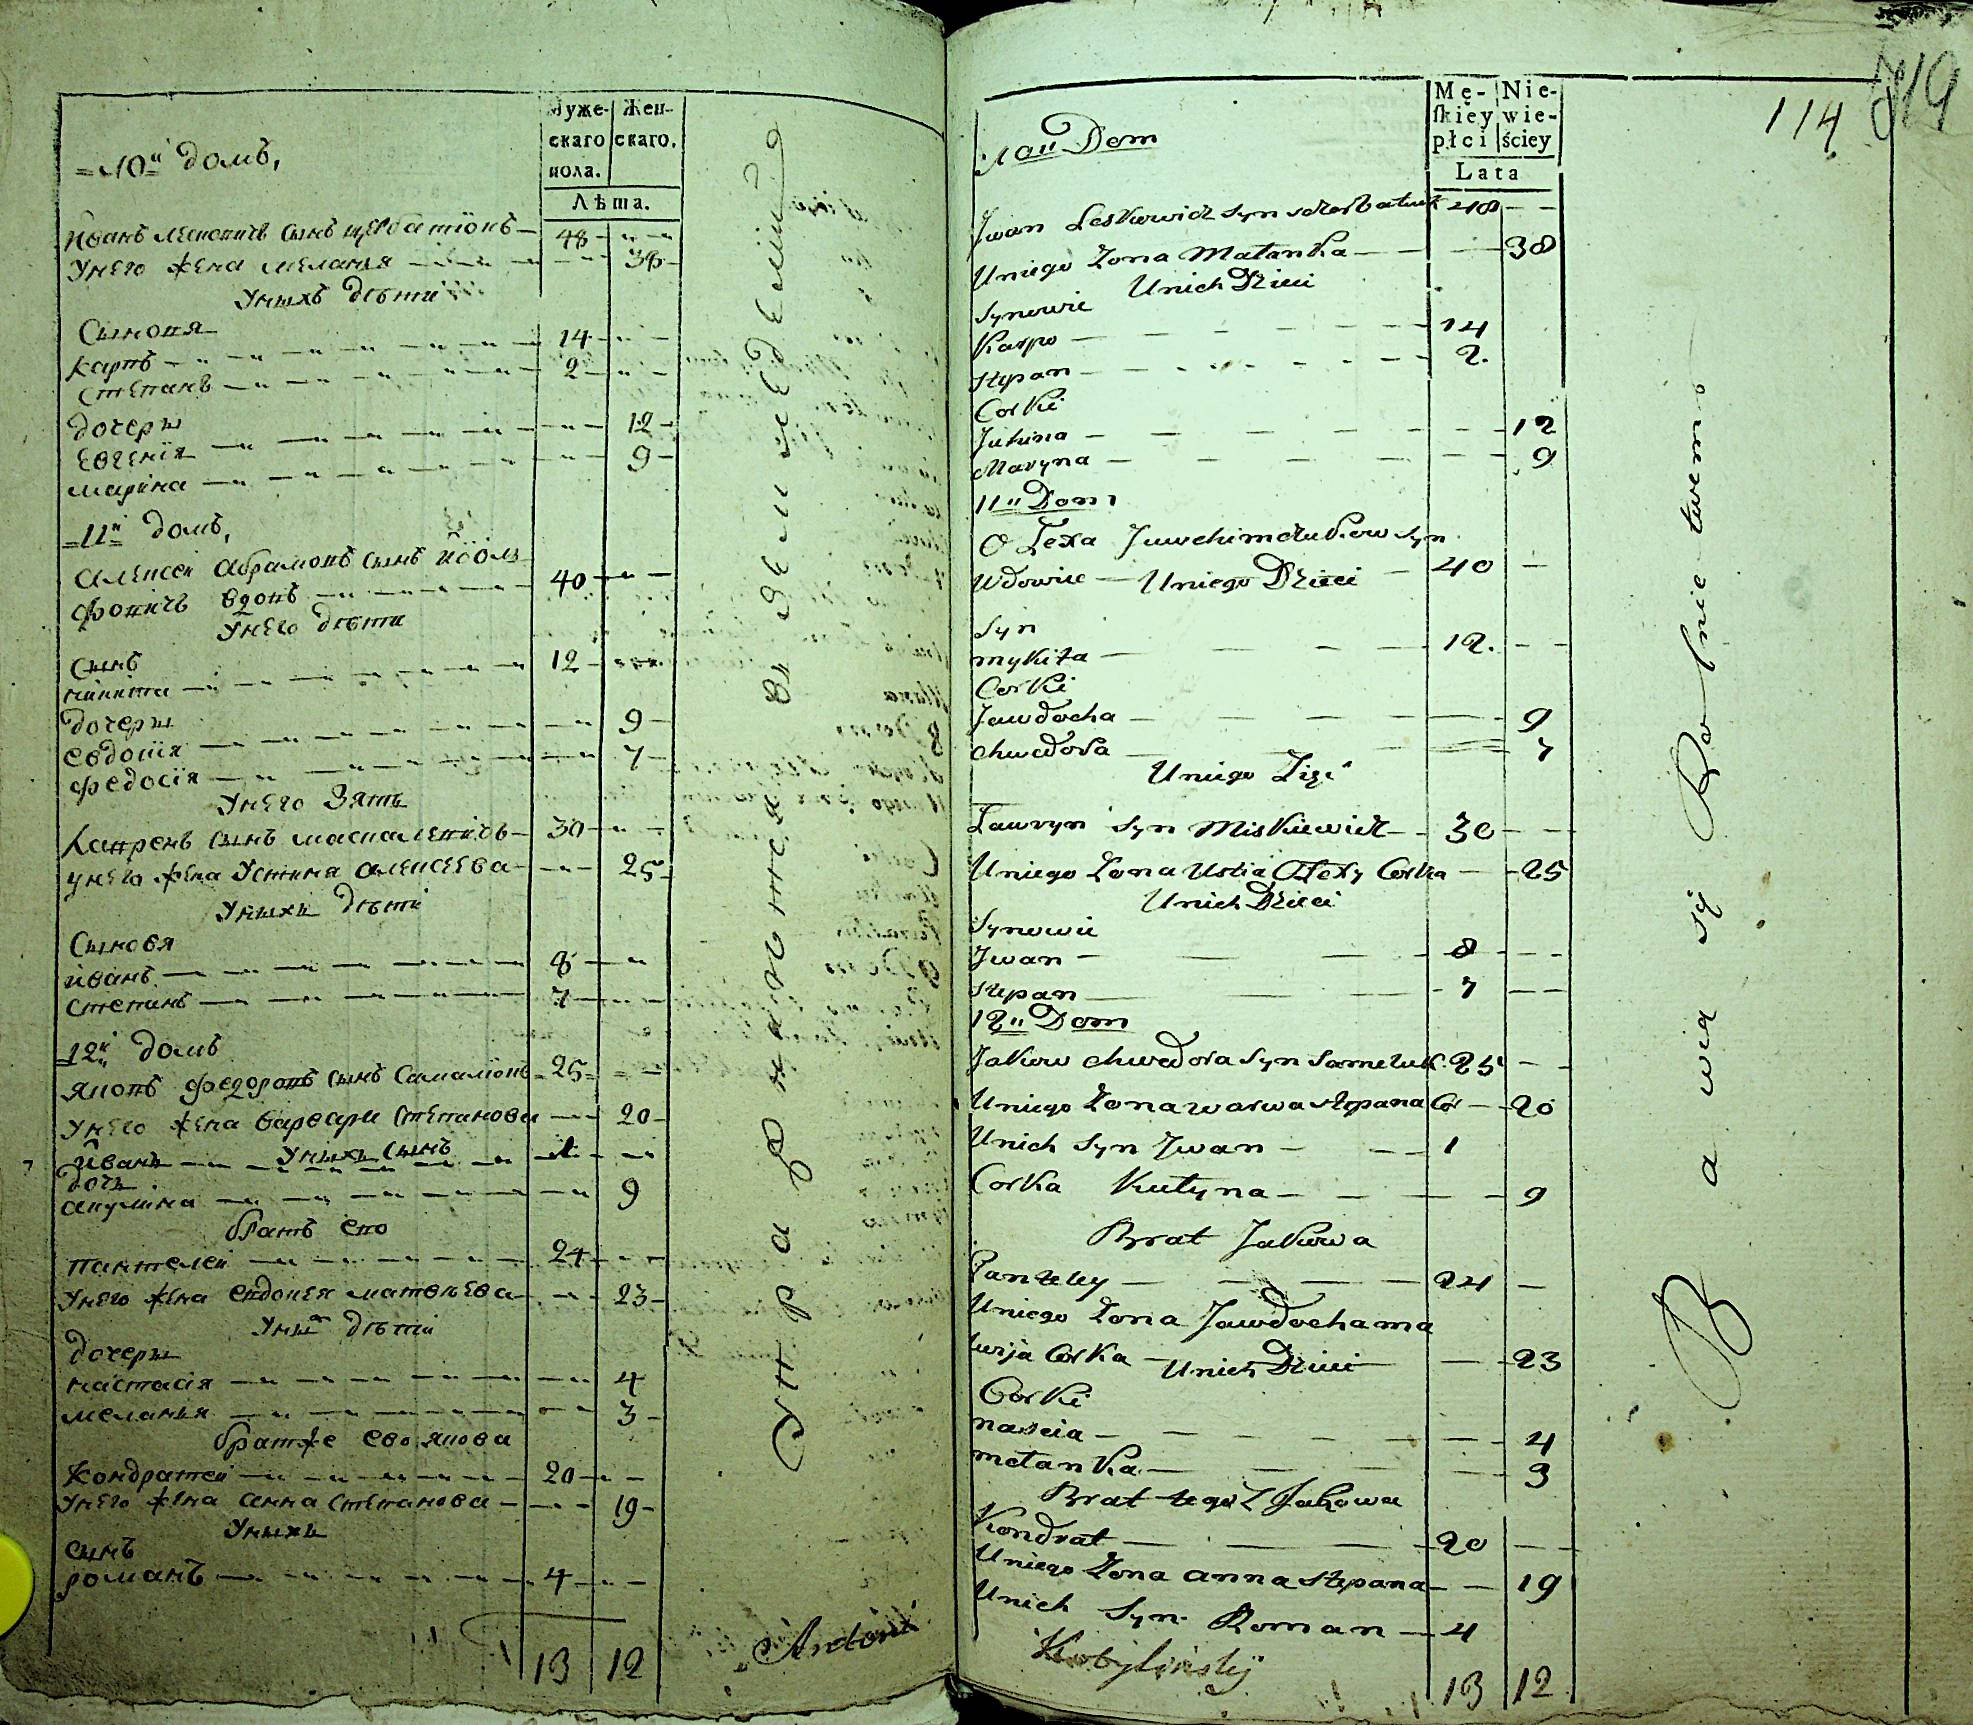 Муже-
скаго
пола.
Жен-
скаго.
Лѣта.
10й домъ,
сынъ 48
Унего жена меланья 38
Уныхъ дѣти
Сыновя
Карпъ 14
Степанъ 2
дочеры
Евгенія 12
марина 9
11й домъ,
Алексей Абрамовъ сынъ
вдовъ 40
Унего дѣти
Сынъ
никита 12
дочеры
Евдокія 9
Федосія 7
Унего Зять
Лавренъ сынъ 30
унего жена Устиня алексеева 25
Уныхъ дѣти
Сыновя
иванъ 8
степанъ 7
12й домъ
Яковъ Федоровъ сынъ 25
Унего жена варвара Степанова 20
Уныхъ Сынъ
Иванъ 1
дочь
акулина 9
братъ его
пантелей 24
Унего жена евдокея матвеева 23
Уных дѣти
дочеры
настасія 4
меланья 3
братже его якова
Кондратей 20
Унего жена анна степанова 19
Уныхъ
сынъ
романъ 4
13 12
Antoni
Mę-
skiey
płci
Nie-
wie-
ściey
Lata
114
719
10u Dom
Jwan Leskowicz syn 48
Uniego Zona Malanka 38
Unich Dzieci
Synowie
Karpo 14
Stepan 2.
Corki
Juhina 12
Maryna 9
11u Dom
OLexa syn
Wdowiec Uniego Dzieci 40
Syn
mykita 12.
Corki
Jawdocha 9
chwedora 7
Uniego Zięć
Lawryn syn Miskiewicz 30
Uniego Zona Ustia Olexy Corka 25
Unich Dzieci
Synowie
Jwan 8
Stepan 7
12u Dom
Jakow chwedora syn 25
Uniego Zona warwa stepana Cor 20
Unich Syn Jwan 1
Corka Kulyna 9
Brat Jakowa
Panteley 24
Uniego Zona Jawdocha ma
twija Corka Unich Dzieci 23
Corki
nascia 4
melanka 3
Brat tegoż Jakowa
Kondrat 20
Uniego Zona anna stepana 19
Unich Syn Roman 4
Kobylinsky
13 12